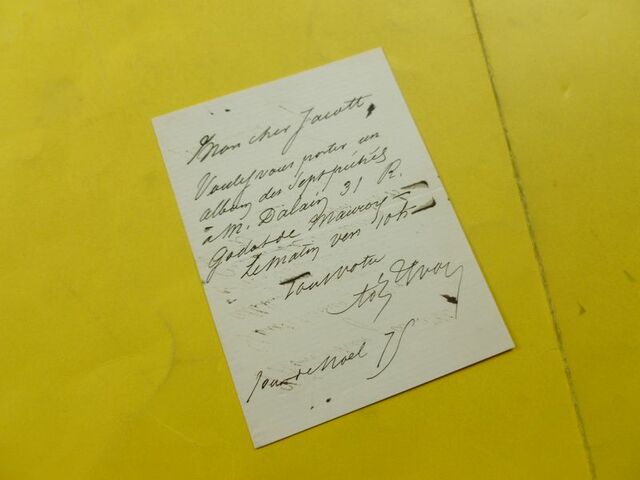 Mon cher Jacott
Voulez vous porter un
album des Sept péchés
à M. Dalain 31 R.
Godot de Mauroy
Le Matin vers 10h
Tout votre
Yvon
Jour de Noel 75